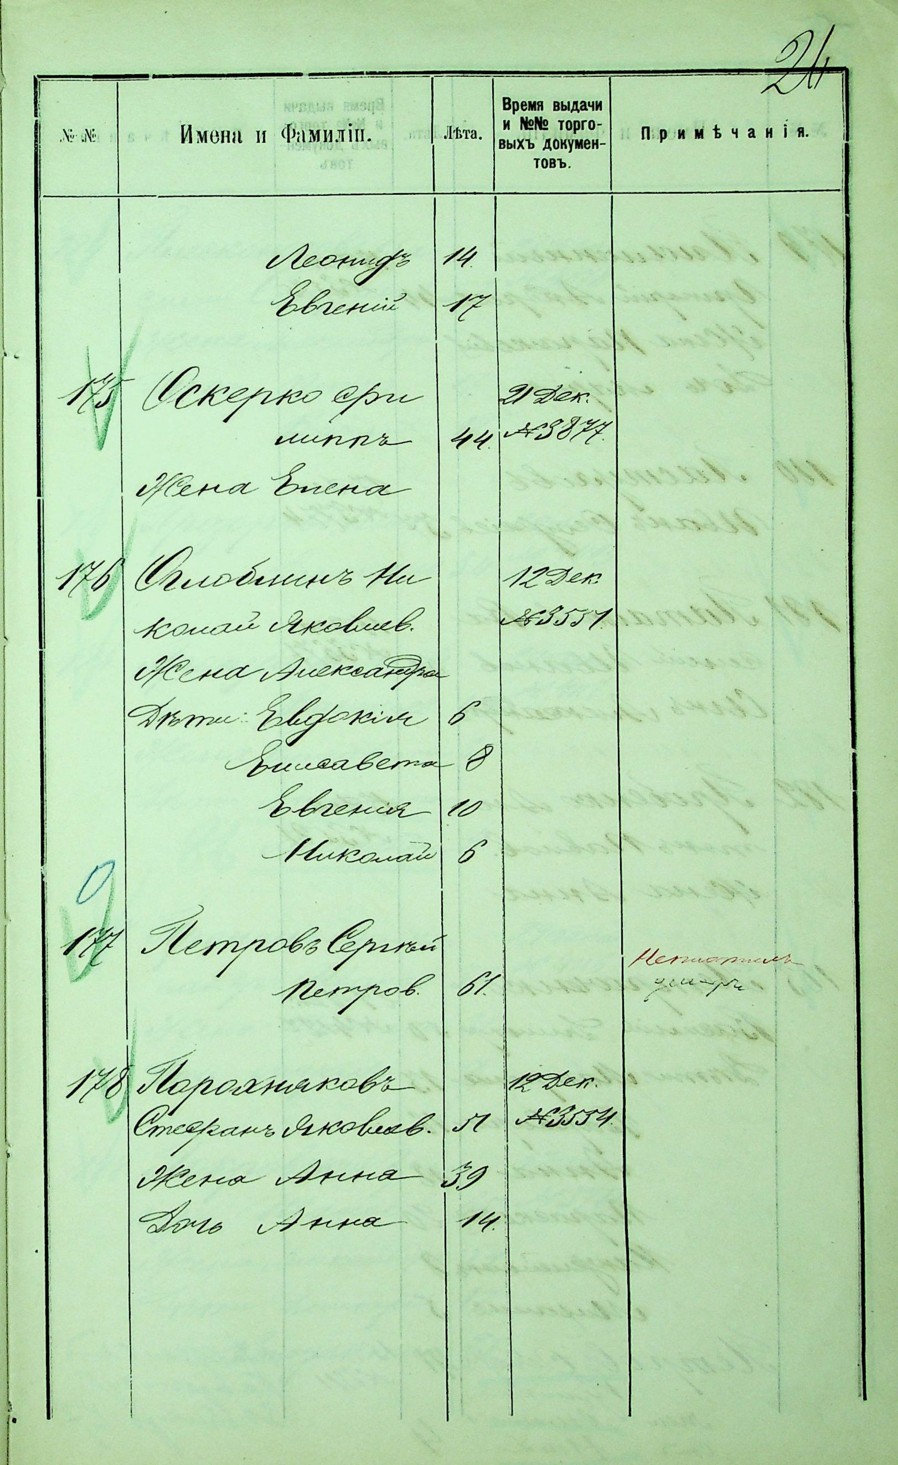 24
№№ Имена и Фамиліи. Лѣта. Время выдачи и №№ торговыхъ документовъ. Примѣчанія.
Леонидъ 14.
Евгеній 17
175 Оскерко Фи 21 Дек.
липпъ 44. №3877.
Жена Елена
176 Оглоблинъ Ни 12 Дек
колай Яковлев. №3551.
Жена Александра
Дѣти: Евдокія 6
Елисавета 8
Евгенія 10
Николай 6
177 Петровъ Сергѣй
Петров. 61.
178 Порохняковъ 12 Дек.
Стефанъ Яковлев. 51 №3554.
Жена Анна 39
Дочь Анна 14.